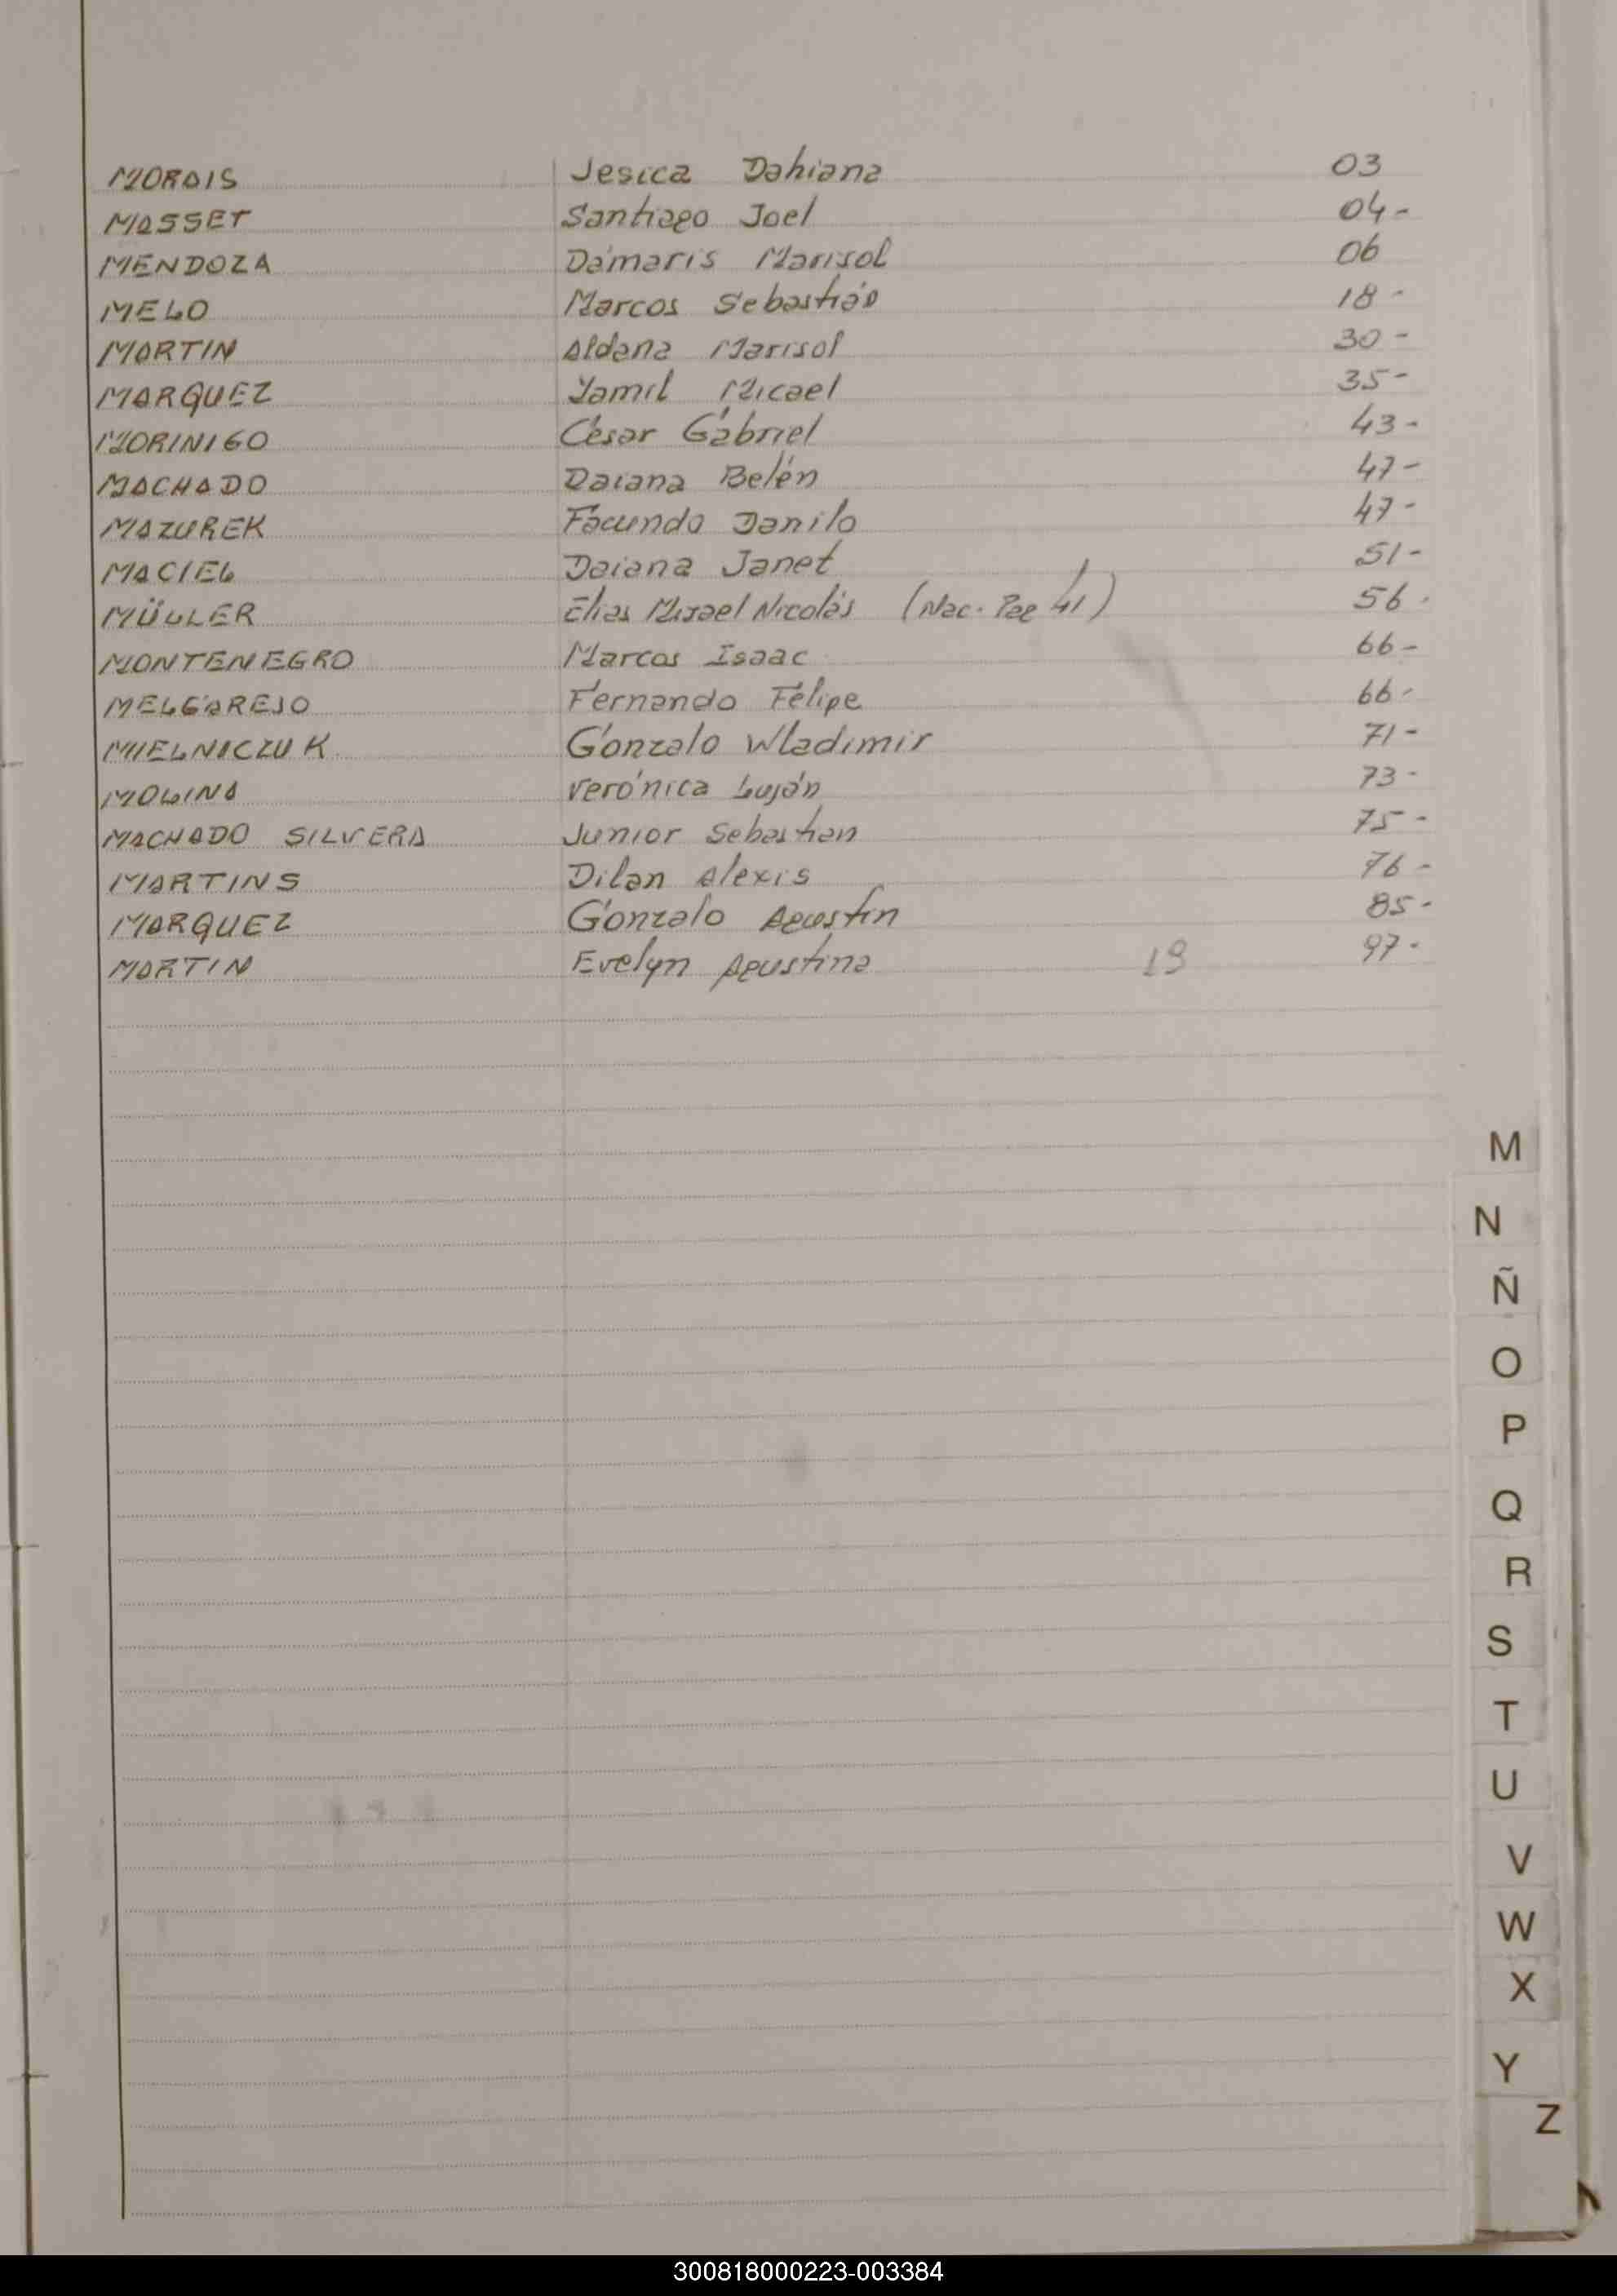 MORAIS Jesica Dahiana 03
MASSET Santiago Joel 04-
MENDOZA Dámaris Marisol 06
MELO Marcos Sebastián 18-
MARTIN Aldana Marisol 30-
MARQUEZ Yamil Micael 35-
MORINIGO César Gabriel 43-
MACHADO Daiana Belén 47-
MAZUREK Facundo Danilo 47-
MACIEL Daiana Janet 51-
MÜLLER Elias Misael Nicolás (Nac. Pag 41) 56-
MONTENEGRO Marcos Isaac 66-
MELGAREJO Fernando Felipe 66-
MIELNICZUK Gonzalo Wladimir 71-
MOLINA Verónica Luján 73-
MACHADO SILVERA Junior Sebastian 75-
MARTINS Dilan Alexis 76-
MARQUEZ Gonzalo Agustín 85-
MARTIN Evelyn Agustina 19 97-
M
N
Ñ
O
P
Q
R
S
T
U
V
W
X
Y
Z
300818000223-003384